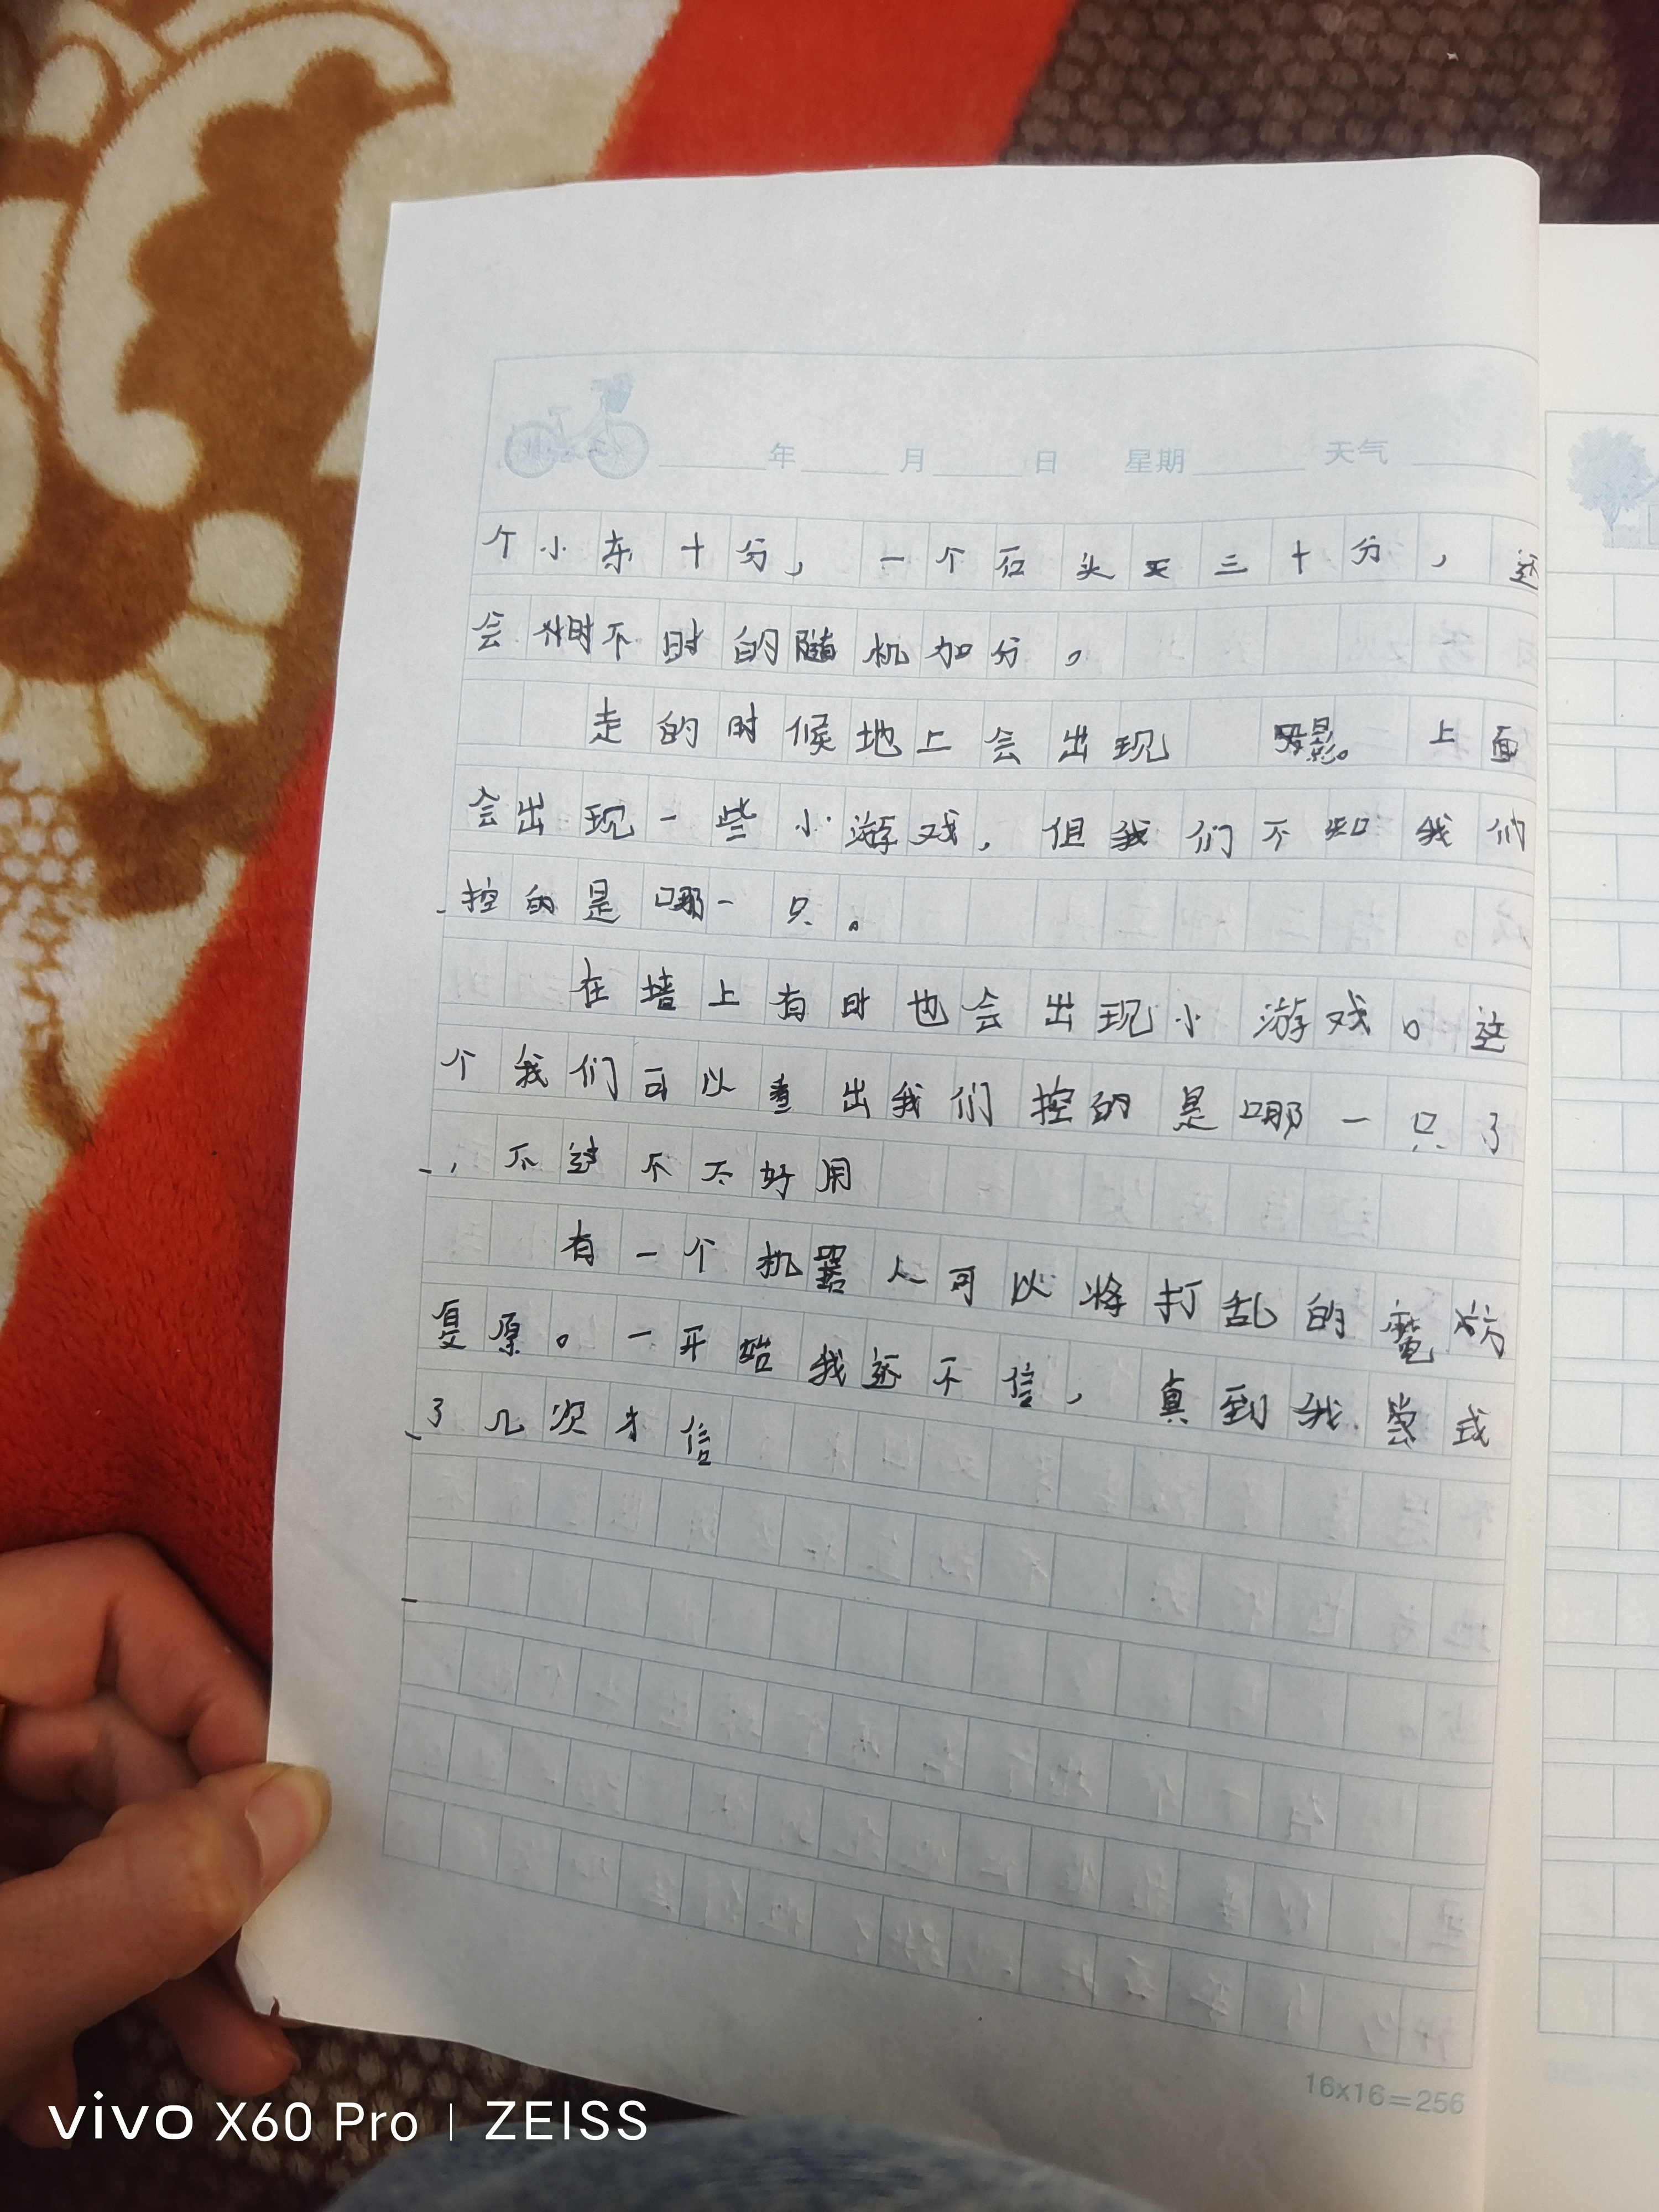 年 月 日 星期 天气
个小东十分，一个石头三十分，还
会时不时的随机加分。
走的时候地上会出现 投影。上面
会出现一些小游戏，但我们不知我们
控的是哪一只。
在墙上有时也会出现小游戏。这
个我们可以查出我们控的是哪一只了
，不过不不好用
有一个机器人可以将打乱的魔方
复原。一开始我还不信，真到我尝式
了几次才信
16x16=256
vivo X60 Pro | ZEISS